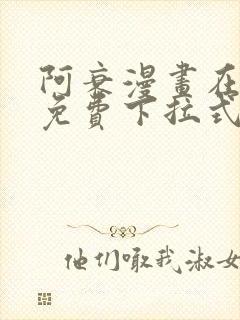 阿衰漫畫在
免費下拉式
他们啾我淑女